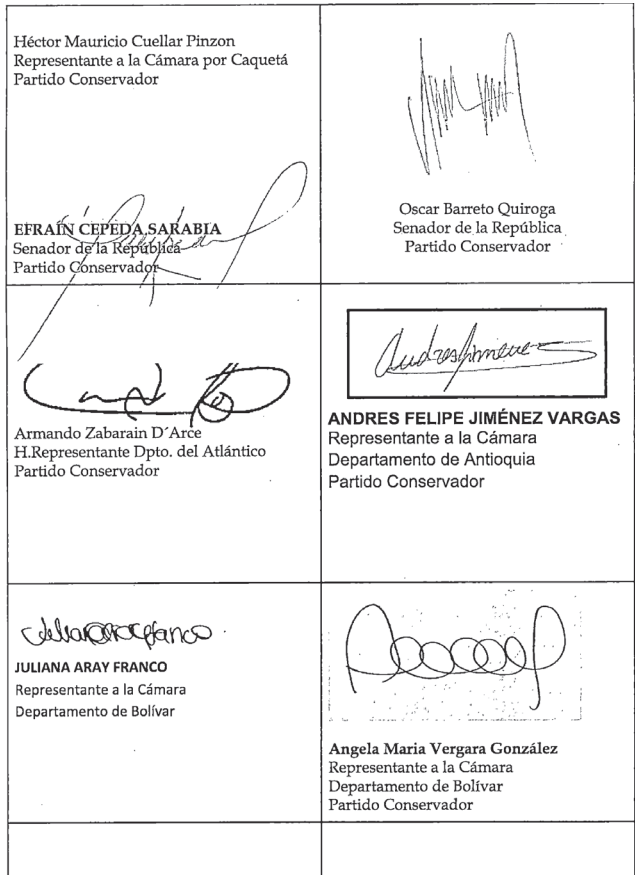 Héctor Mauricio Cuellar Pinzon
Representante a la Cámara por Caquetá
Partido Conservador
EFRAÍN CEPEDA SARABIA
Senador de la República
Partido Conservador
Oscar Barreto Quiroga
Senador de la República
Partido Conservador
Armando Zabarain D´Arce
H.Representante Dpto. del Atlántico
Partido Conservador
ANDRES FELIPE JIMÉNEZ VARGAS
Representante a la Cámara
Departamento de Antioquia
Partido Conservador
JULIANA ARAY FRANCO
Representante a la Cámara
Departamento de Bolívar
Angela Maria Vergara González
Representante a la Cámara
Departamento de Bolívar
Partido Conservador